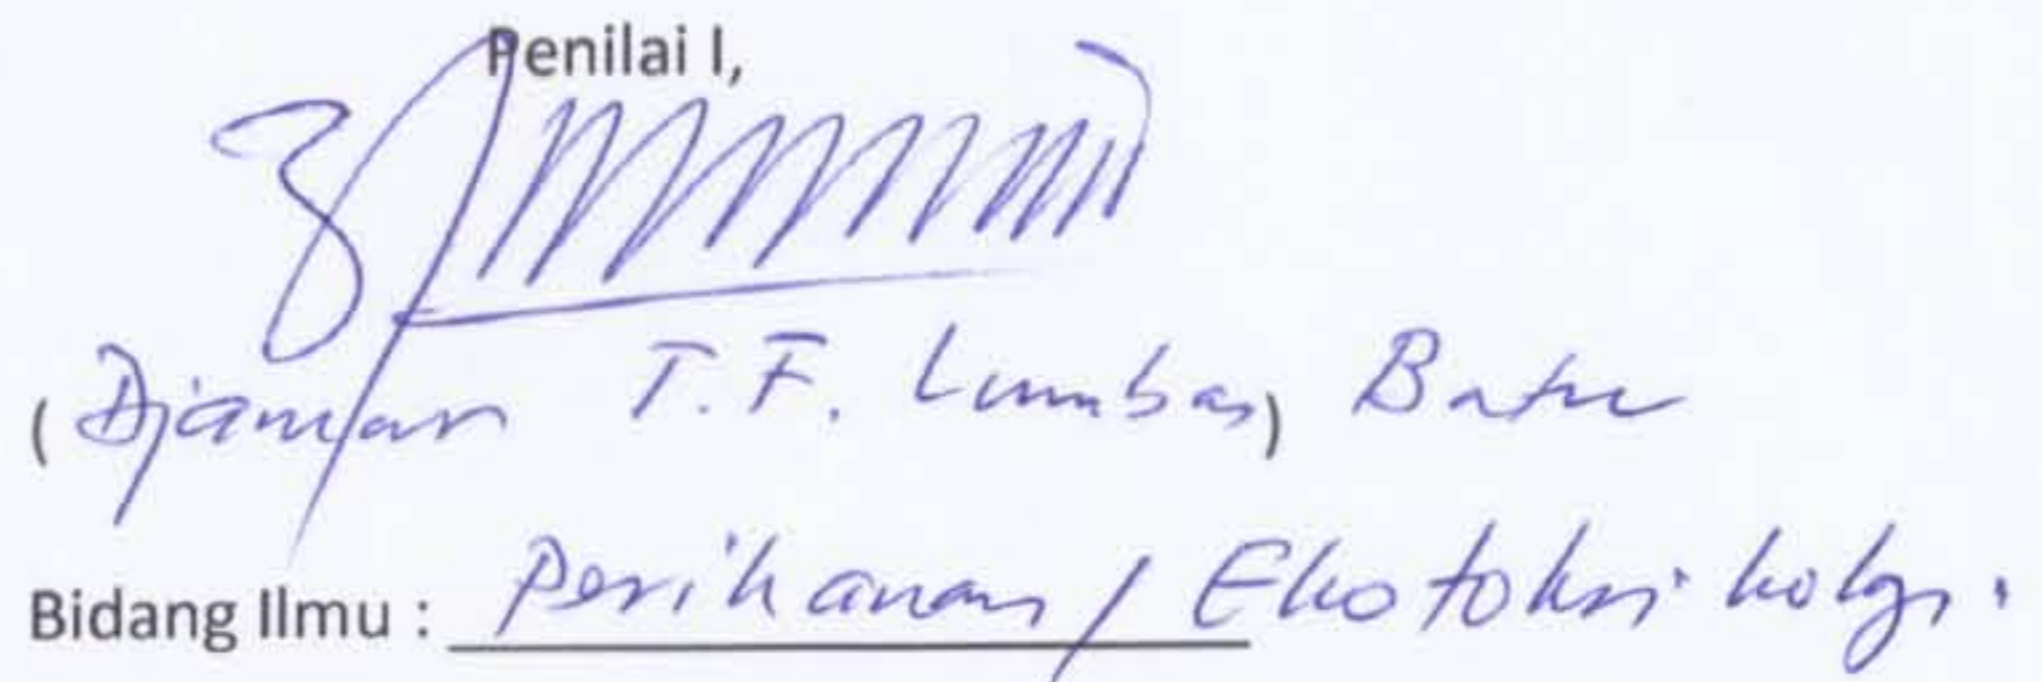 Penilai I,
( Djamar T.F. Lumban ) Batu
Bidang Ilmu : Perikanan / Ekotoksikologi.